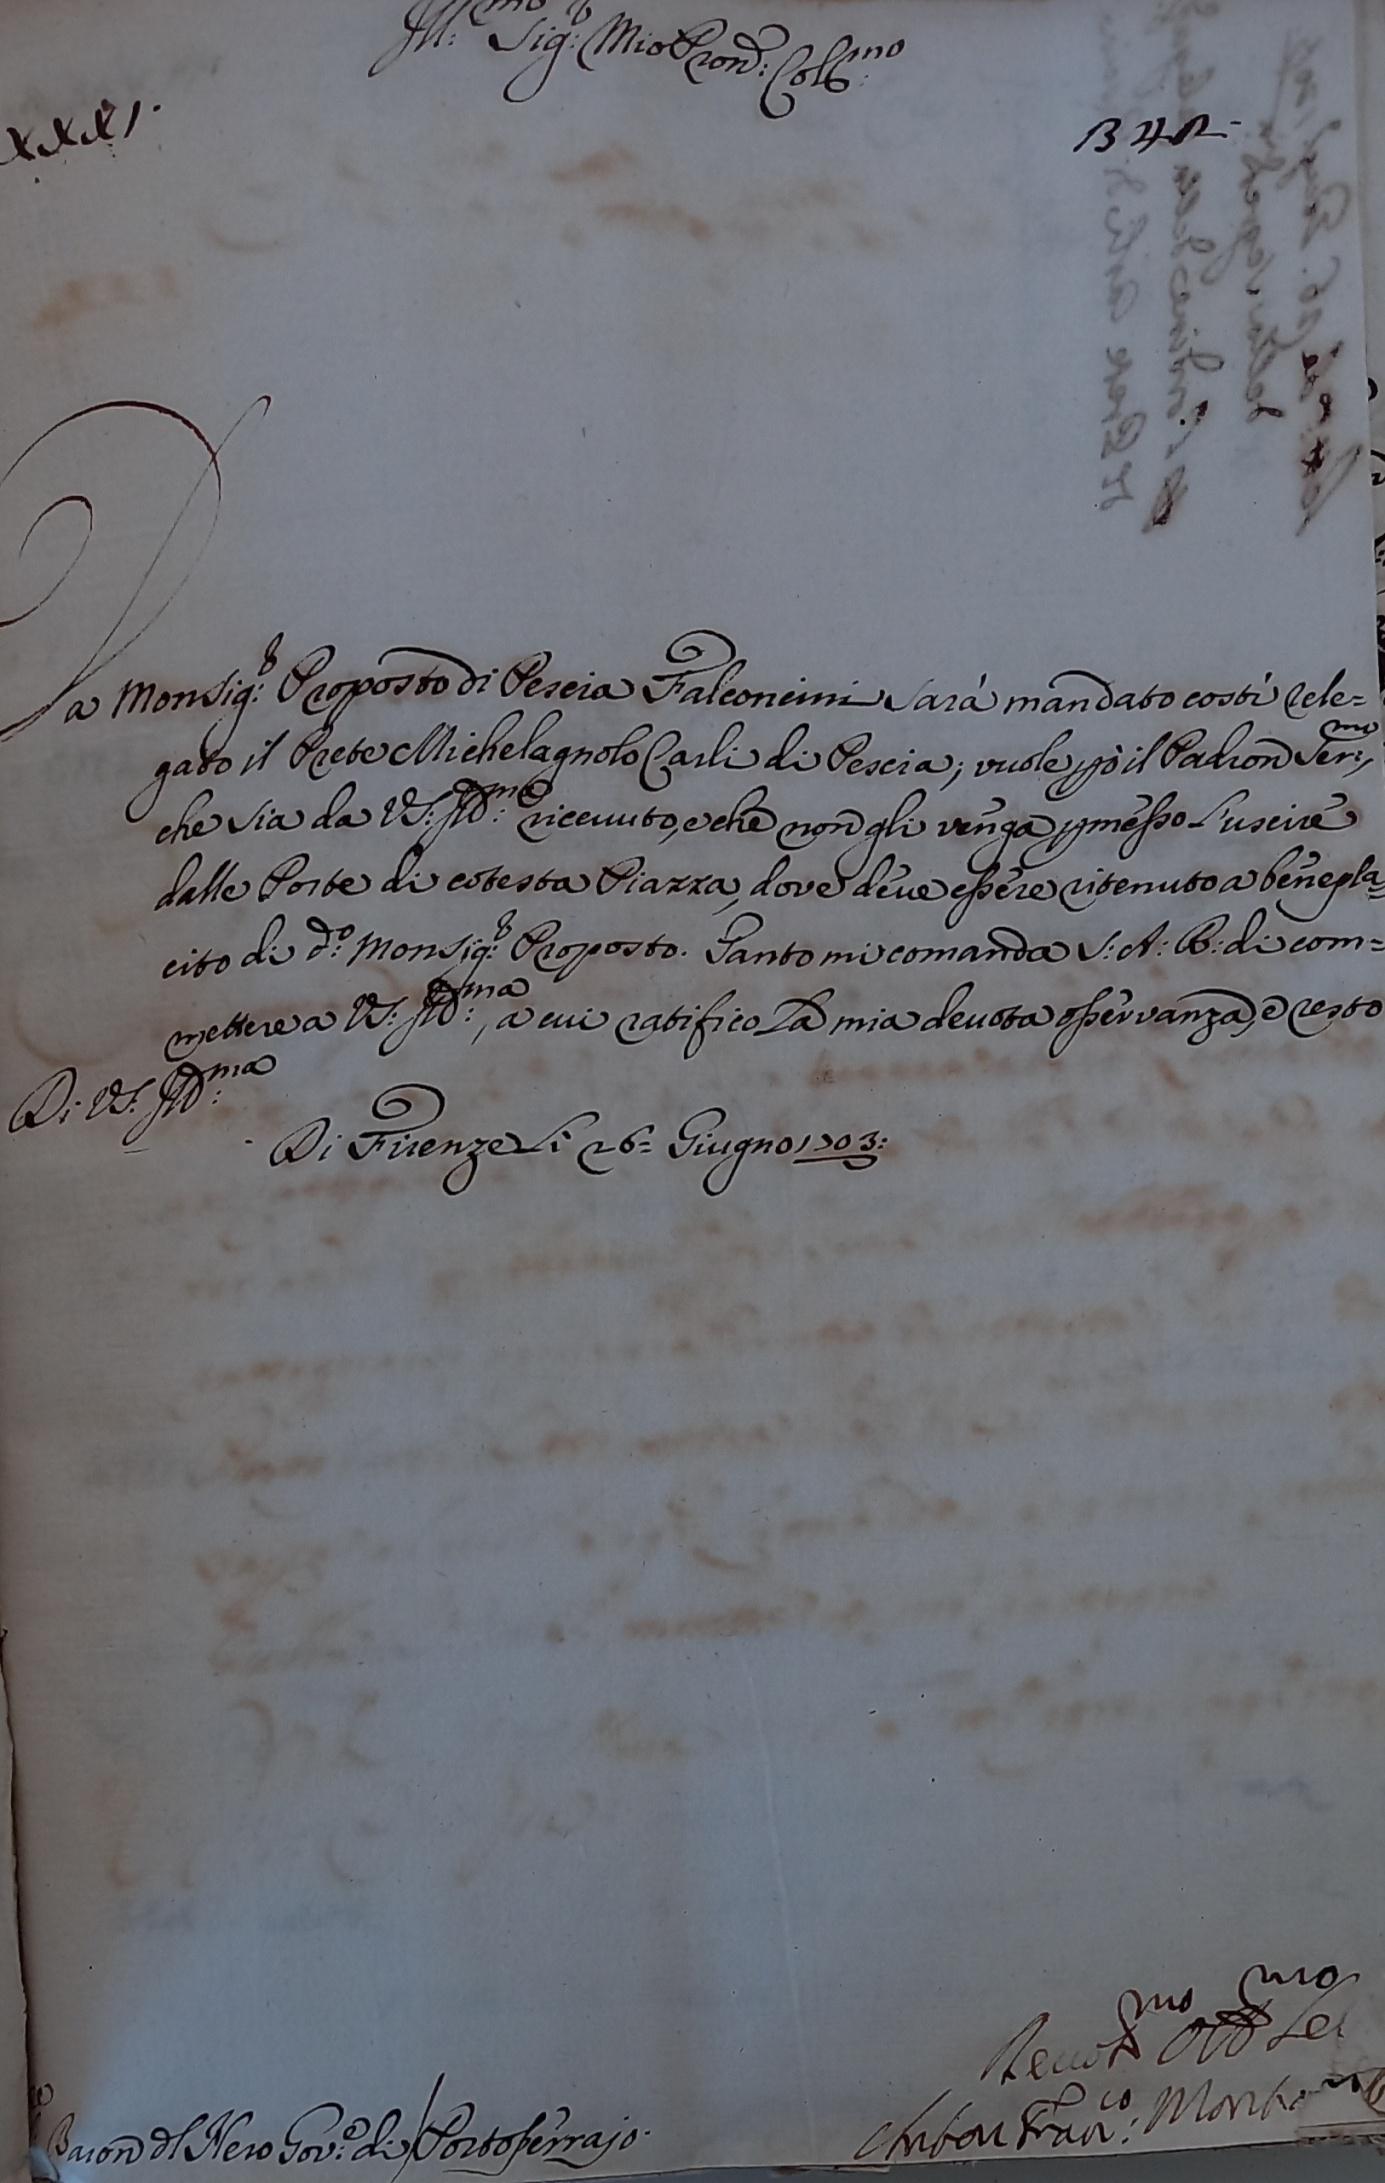 Ill:mo Sig:r Mio Pron: Col:mo
XXXI.
342
Da Monsig:r Proposto di Pescia Falconcini sarà mandato costì rele=
gato il Prete Michelagnolo Carli di Pescia; vuole però il Padron Ser:mo,
che sia da VS: Ill:ma riceuuto, e che non gli venga pmesso l'uscire
dalle Porte di cotesta Piazza, dove deue essere ritenuto a benepla=
cito di d:o Monsig:r Proposto. Tanto mi comanda S: A: R: di com=
mettere a VS: Ill:ma, a cui ratifico la mia deuota osservanza, e resto
Di VS: Ill:ma
Di Firenze Li 26= Giugno 1703:
Deuot:mo Obb:mo Se
Anton Fran:co
Baron del Nero Gov:e di Portoferrajo.